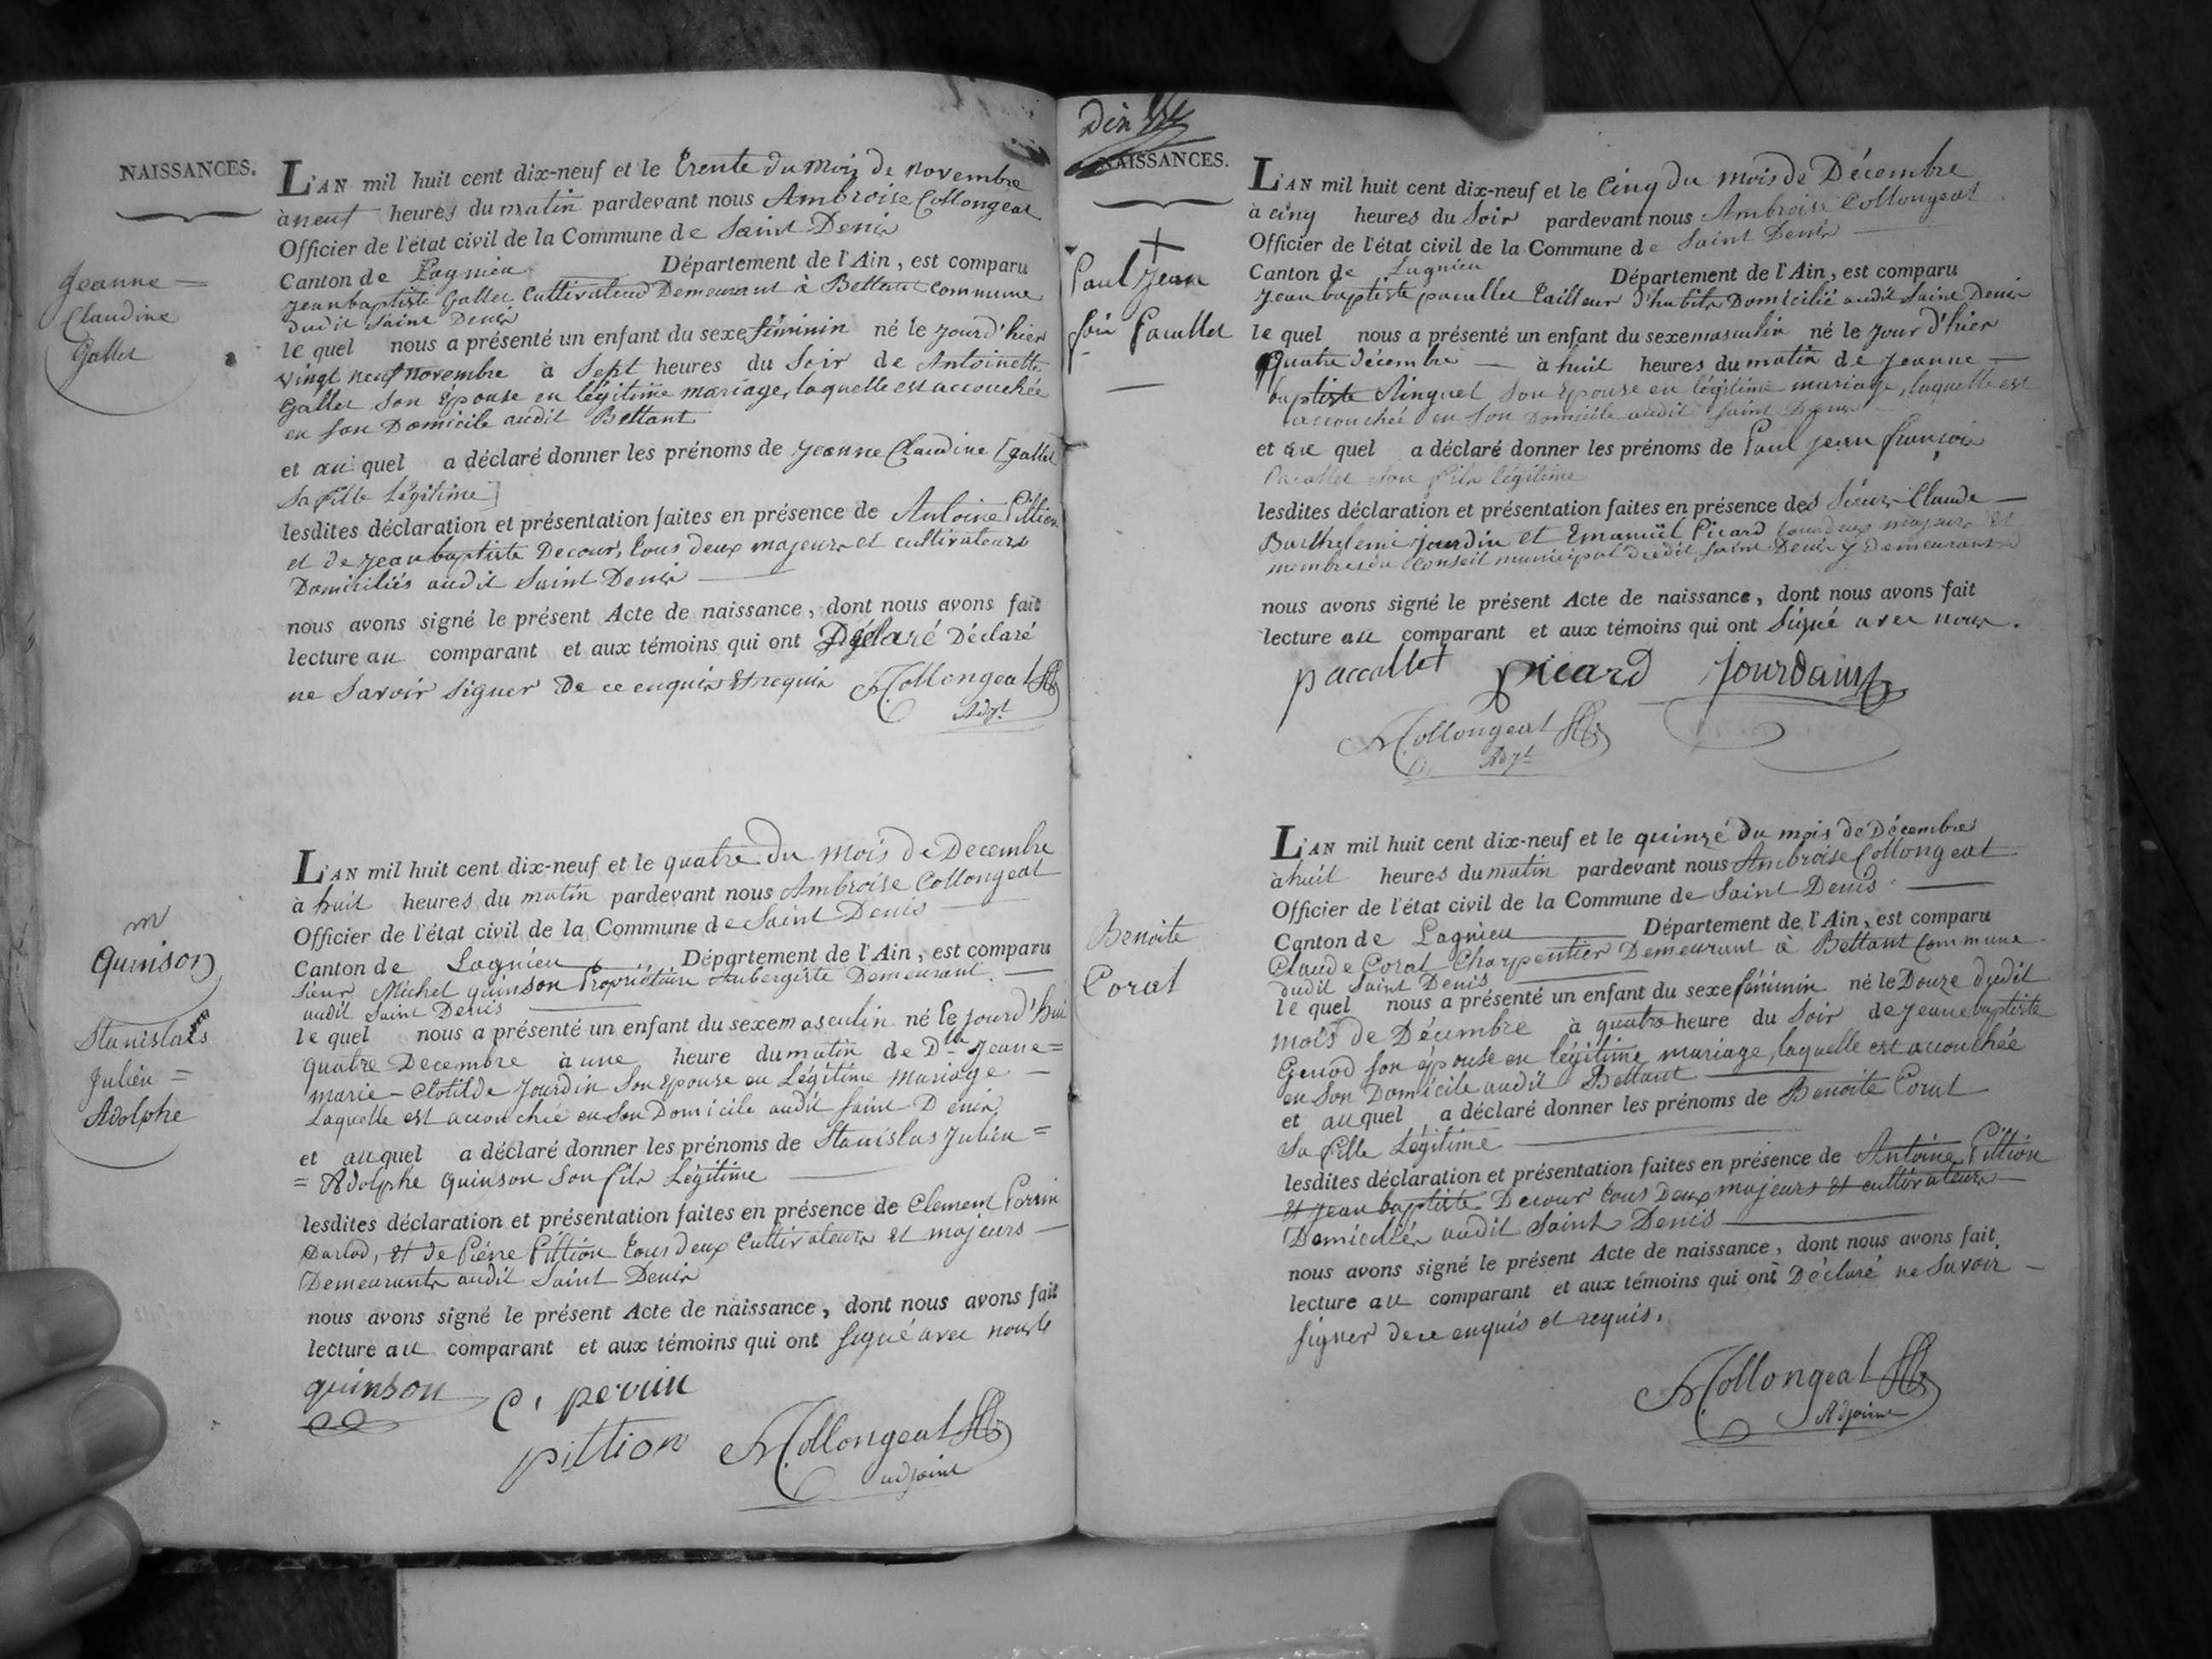 NAISSANCES.
Jeanne =
Claudine
Gallet
L'AN mil huit cent dix-neuf et le trente du mois de novembre
à neuf heures du matin pardevant nous Ambroise Collongeat
Officier de l'état civil de la Commune de Saint Denis
Canton de Lagnieu Département de l'Ain, est comparu
Jean baptiste Gallet Cultivateur Demeurant à Bettant commune
dudit Saint Denis
le quel nous a présenté un enfant du sexe féminin né le jour d'hier
vingt neuf novembre à Sept heures du Soir de Antoinette
Gallet Son Epouse en légitime mariage, laquelle est accouchée
en Son Domicile audit Bettant
et au quel a déclaré donner les prénoms de Jeanne Claudine [gallet
Sa fille Légitime]
lesdites déclaration et présentation faites en présence de Antoine Pittion
et de Jean baptiste Decour, tous deux majeurs et cultivateurs
Domiciliés audit Saint Denis —
nous avons signé le présent Acte de naissance, dont nous avons fait
lecture au comparant et aux témoins qui ont Déclaré Déclaré
ne Savoir signer de ce enquis et requis Collongeat
Adjt
m
Quinson
Stanislas
Julien =
Adolphe
L'AN mil huit cent dix-neuf et le quatre du mois de Decembre
à huit heures du matin pardevant nous Ambroise Collongeat
Officier de l'état civil de la Commune de Saint Denis —
Canton de Lagnieu Département de l'Ain, est comparu
Sieur Michel quinson Propriétaire Aubergiste Demeurant —
audit Saint Denis —
le quel nous a présenté un enfant du sexe masculin né le jourd'hui
quatre Decembre à une heure du matin de Dlle Jeane =
marie - Clotilde Jourdin Son Epouse en Légitime mariage —
Laquelle est accouchée en Son Domicile audit Saint Denis
et auquel a déclaré donner les prénoms de Stanislas Julien =
= Adolphe quinson Son fils Légitime —
lesdites déclaration et présentation faites en présence de Clement Perrin
et de Piérre Pittion tous deux Cultivateurs et majeurs —
Demeurants audit Saint Denis
nous avons signé le présent Acte de naissance, dont nous avons fait
lecture au comparant et aux témoins qui ont signé avec nous
quinson C, perrin
pittion Collongeat
adjoint
dix
NAISSANCES.
Paul Jean
fois Pacallet
L'AN mil huit cent dix-neuf et le Cinq du mois de Décembre
à cinq heures du Soir pardevant nous Ambroise Collongeat
Officier de l'état civil de la Commune de Saint Denis —
Canton de Lagnieu Département de l'Ain, est comparu
Jean baptiste pacallet tailleur d'habits Domicilié audit Saint Denis
le quel nous a présenté un enfant du sexe masculin né le jour d'hier
Quatre décembre — à huit heures du matin de Jeanne —
baptiste Son Epouse en légitime mariage, laquelle est
accouchée en Son Domicile audit Saint Denis —
et au quel a déclaré donner les prénoms de Paul Jean françois
Pacallet Son fils légitime
lesdites déclaration et présentation faites en présence des Sieurs Claude —
Barthelemi Jourdin et Emanuël Picard tous deux majeurs et
membres du Conseil municipal dudit Saint Denis y demeurants
nous avons signé le présent Acte de naissance, dont nous avons fait
lecture au comparant et aux témoins qui ont Signé avec nous.
paccallet picard Jourdain
Collongeat
Adjt
Benoite
Corat
L'AN mil huit cent dix-neuf et le quinze du mois de Décembre
à huit heures du matin pardevant nous Ambroise Collongeat
Officier de l'état civil de la Commune de Saint Denis —
Canton de Lagnieu Département de l'Ain, est comparu
Claude Corat Charpentier Demeurant à Bettant Commune
dudit Saint Denis —
le quel nous a présenté un enfant du sexe féminin né le Douze dudit
mois de Décembre à quatre heure du Soir de Jeane baptiste
Genod Son épouse en légitime mariage, laquelle est accouchée
en Son Domicile audit Bettant —
et auquel a déclaré donner les prénoms de Benoite Corat
Sa fille Légitime —
lesdites déclaration et présentation faites en présence de Antoine Pittion
et Jean baptiste Decour tous deux majeurs et cultivateurs
Domiciliés audit Saint Denis —
nous avons signé le présent Acte de naissance, dont nous avons fait
lecture au comparant et aux témoins qui ont Déclaré ne Savoir —
signer de ce enquis et requis.
Collongeat
Adjoint